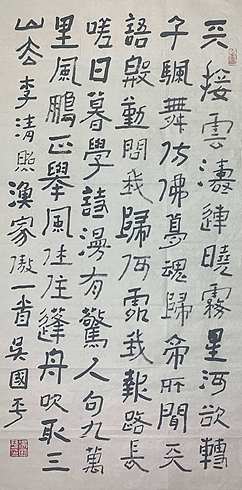 天接雲濤連曉霧星河欲轉
千颿舞仿佛夢魂歸帝所聞天
語殷勤問我歸何處我報路長
嗟日暮學詩謾有驚人句九萬
里風鵬正舉風休住蓬舟吹取三
山去李清照漁家傲一首吳國平